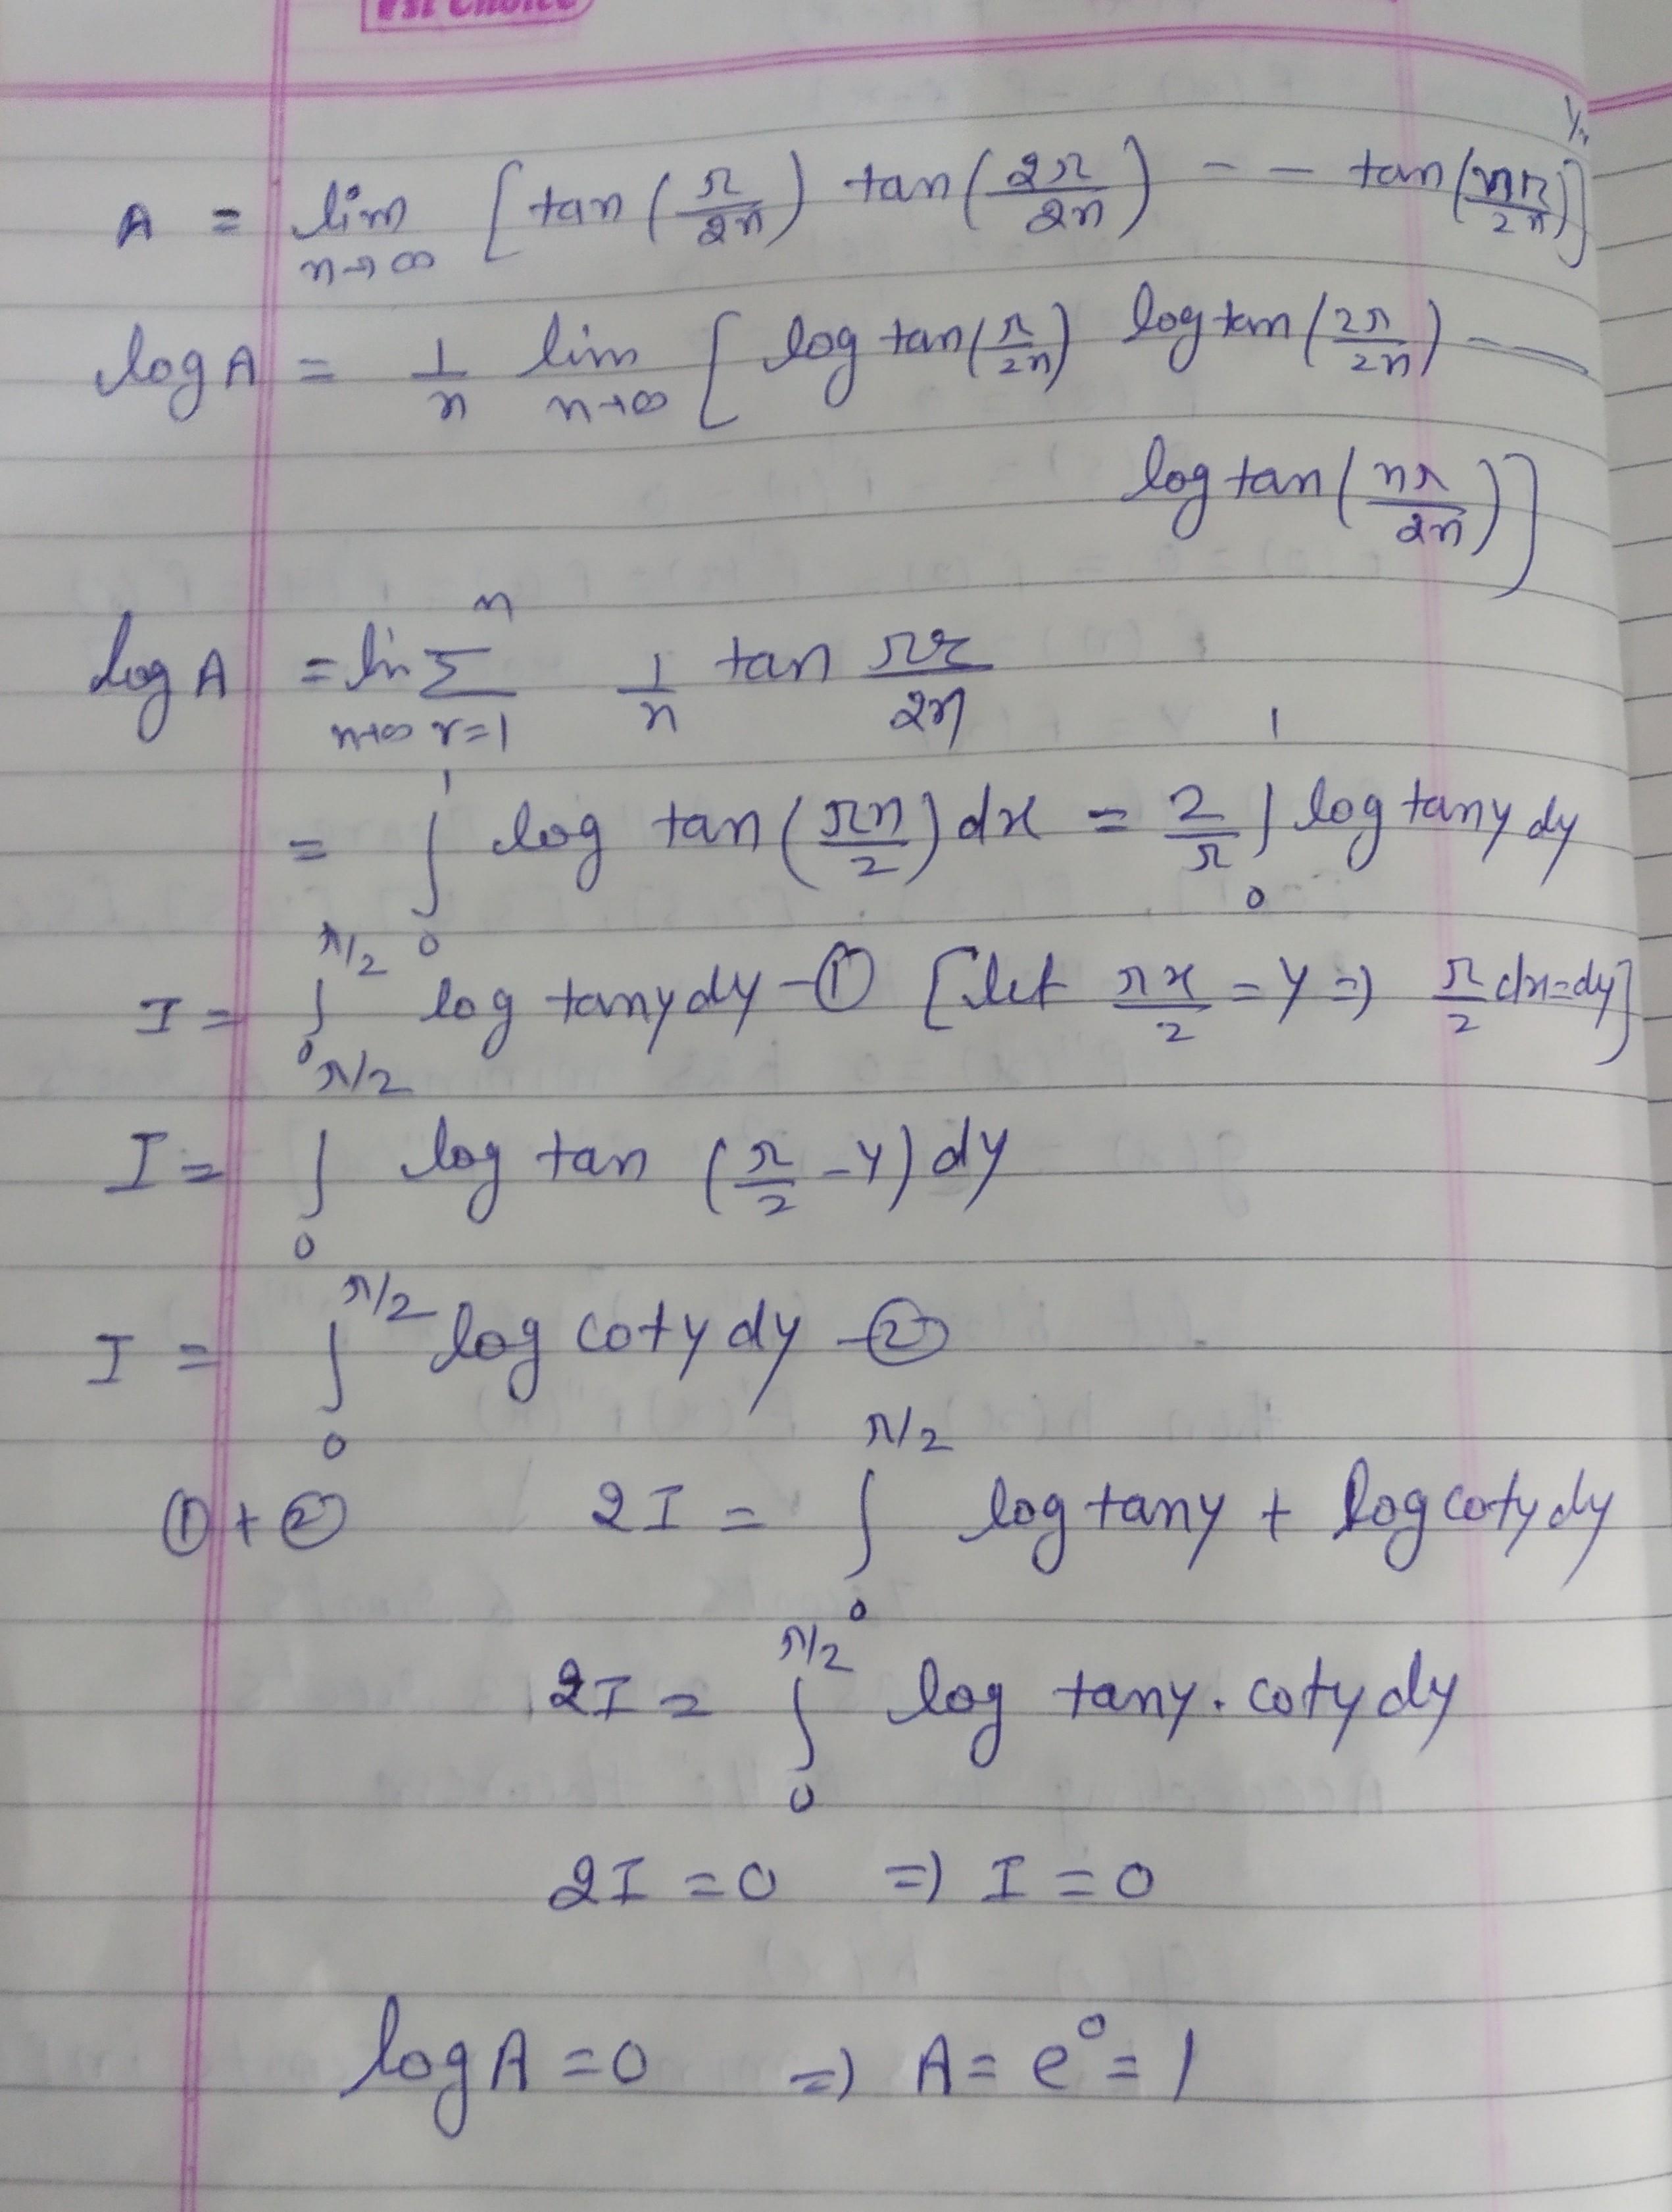 st Choice
A = lim n→∞ [tan(π/2n) tan(2π/2n) - - tan(nπ/2n)]^1/n
log A = 1/n lim n→∞ [log tan(π/2n) log tan(2π/2n) - —
log tan(nπ/2n)]
log A = lin n→∞ Σ r=1 n 1/n tan πr/2n
= ∫₀¹ log tan(πn/2) dx = 2/π ∫₀¹ log tany dy
I = ∫₀^π/2 log tany dy - ① [let πx/2 = y => π/2 dx = dy]
I = ∫₀^π/2 log tan (π/2 - y) dy
I = ∫₀^π/2 log coty dy - ②
① + ② 2I = ∫₀^π/2 log tany + log coty dy
2I = ∫₀^π/2 log tany . coty dy
2I = 0 => I = 0
log A = 0 => A = e⁰ = 1